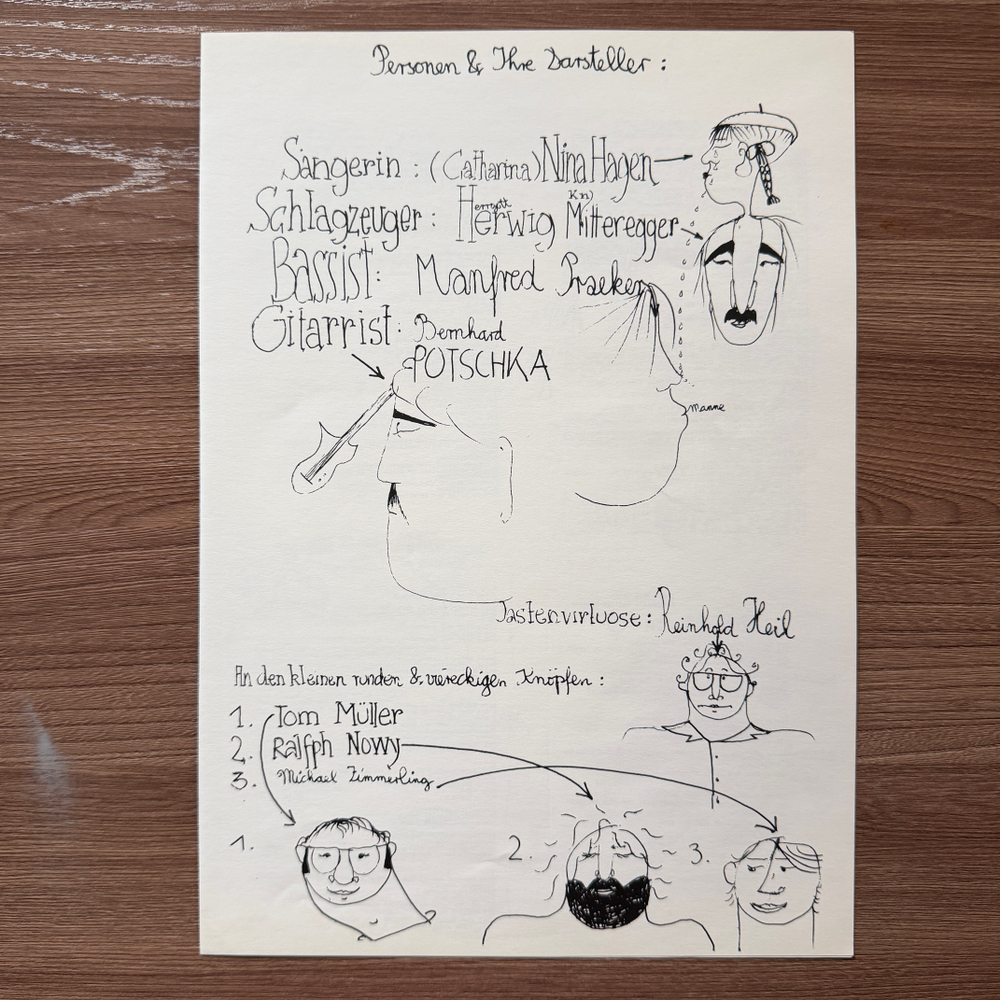 Personen & Ihre Darsteller :
Sängerin : (Catharina) Nina Hagen
Schlagzeuger : Herwig Mitteregger
Kn)
Bassist : Manfred Praeker
Gitarrist : Bernhard
POTSCHKA
manne
Tastenvirtuose : Reinhold Heil
An den kleinen runden & viereckigen Knöpfen :
1. Tom Müller
2. Ralfph Nowy
3. Michael Zimmerling
1.
2.
3.